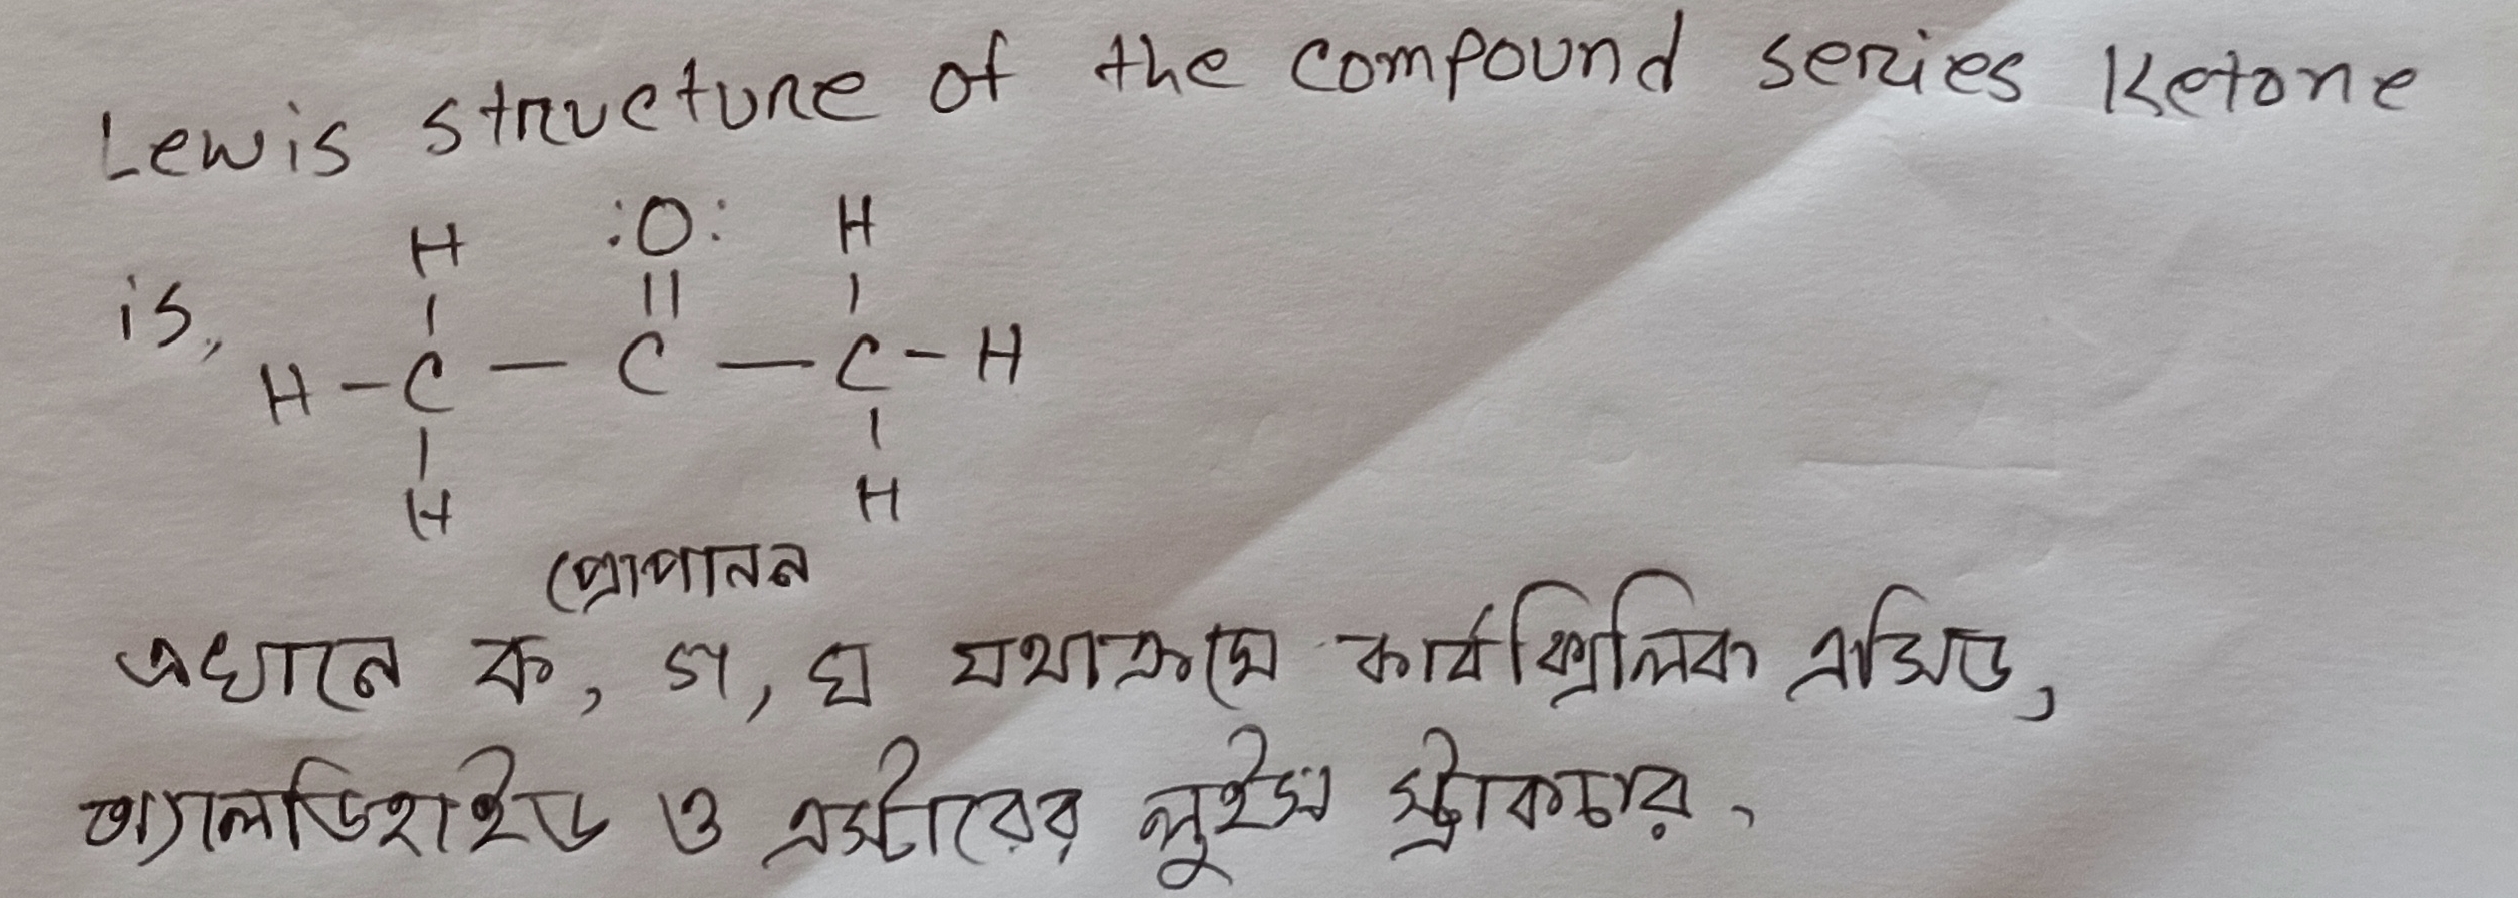 Lewis structure of the compound series Ketone
is,
H :O: H
| || |
H-C — C — C-H
| |
H H
প্রোপানন
এখানে ক, গ, ঘ যথাক্রমে কার্বক্সিলিক এসিড,
অ্যালডিহাইড ও এস্টারের লুইস স্ট্রাকচার,